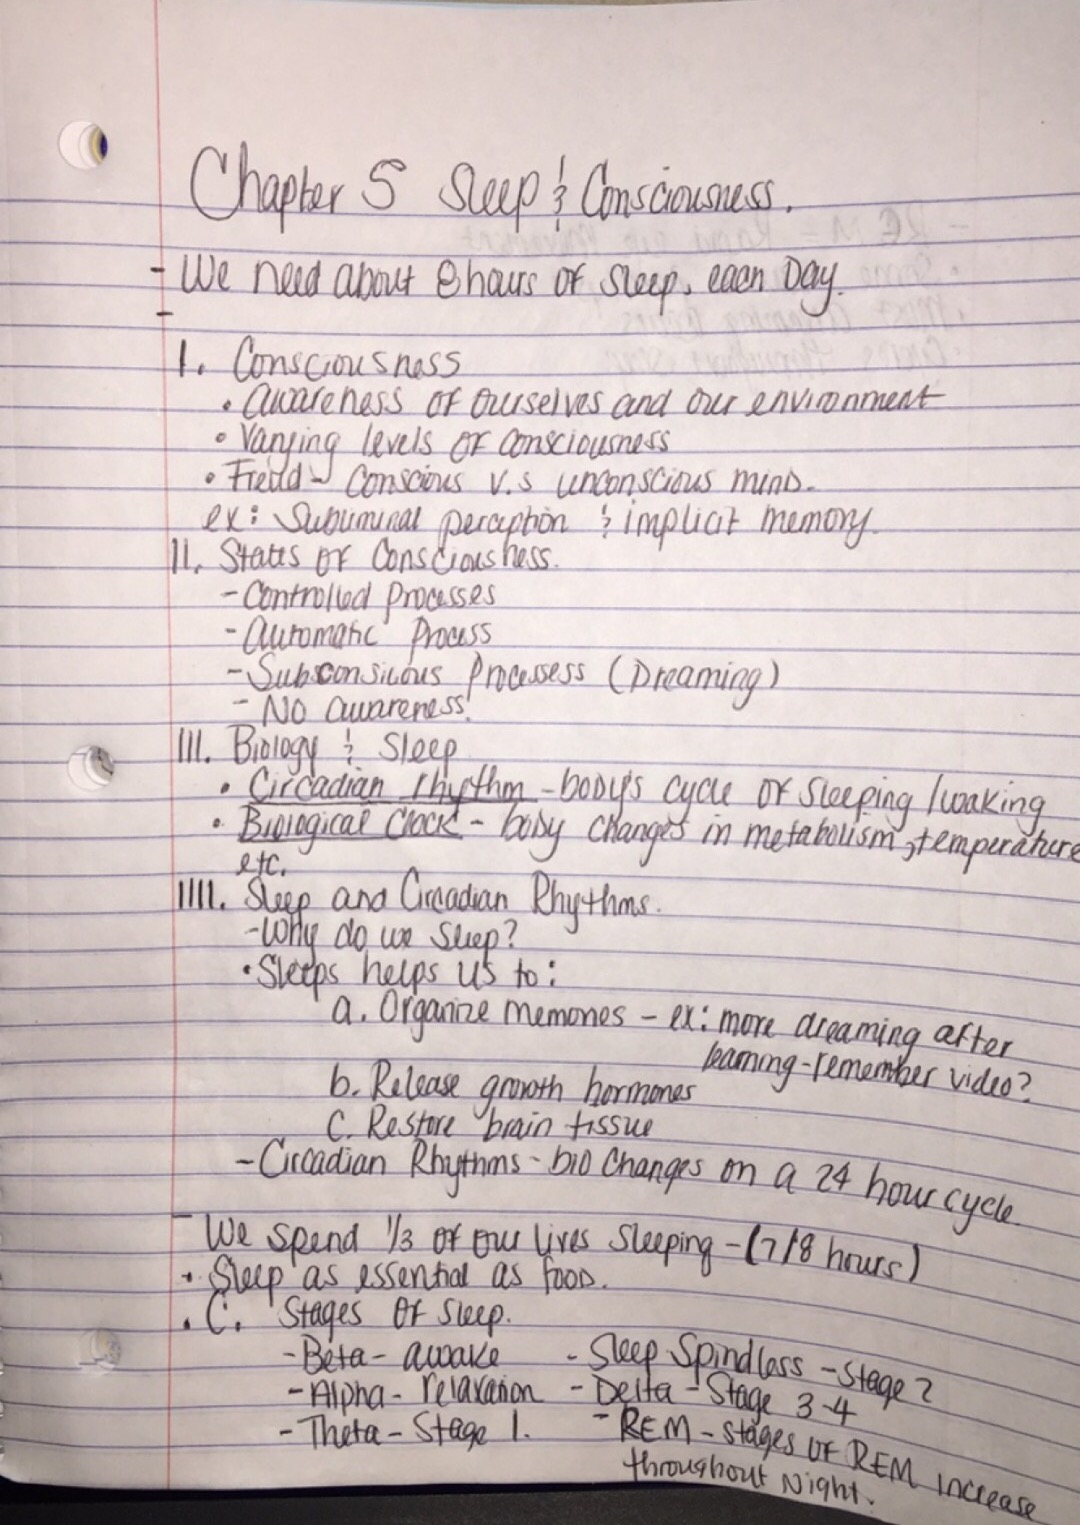 Chapter 5 Sleep & Consciousness.
- We need about 8 hours of sleep, each Day.
-
I. Consciousness
• awareness of ourselves and our environment
• Varying levels of consciousness
• Freud - Conscious v.s unconscious mind.
ex: Subliminal perception & implicit memory.
II. States of Consciousness.
- Controlled Processes
- Automatic Process
- Subconsicous Processess (Dreaming)
- No awareness!
III. Biology & Sleep
• Circadian rhythm - body's cycle of sleeping/waking
• Biological Clock - body changes in metabolism, temperature
etc.
IIII. Sleep and Circadian Rhythms.
- Why do we sleep?
• Sleeps helps us to:
a. Organize memories - ex: more dreaming after
learning - remember video?
b. Release growth hormones
C. Restore brain tissue
- Circadian Rhythms - bio changes on a 24 hour cycle.
- We spend 1/3 of our lives sleeping - (7/8 hours)
• Sleep as essential as food.
• C. Stages of sleep.
- Beta - awake - Sleep Spindless - Stage 2
- Alpha - relaxation - Delta - Stage 3-4
- Theta - Stage 1. - REM - stages of REM increase
throughout Night.